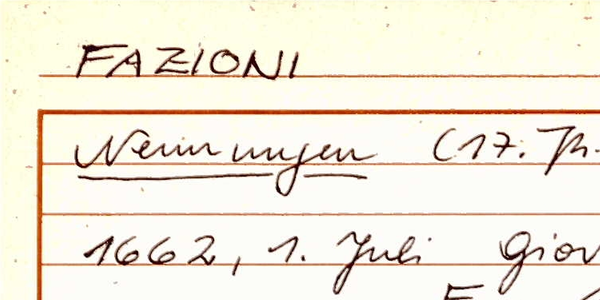 FAZIONI
Nennungen (17. Jh.
1662, 1. Juli Giov
F